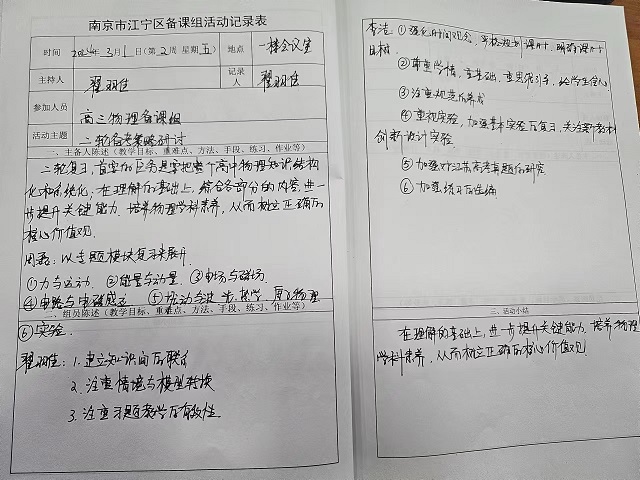 南京市江宁区备课组活动记录表
时间 2024年3月1日(第2周 星期五) 地点 一楼会议室
主持人 翟羽佳 记录人 翟羽佳
参加人员 高三物理备课组
活动主题 二轮备考策略研讨
一、主备人陈述(教学目标、重难点、方法、手段、练习、作业等)
二轮复习,首要的任务是要把整个高中物理知识结构
化和系统化;在理解的基础上,综合各部分的内容,进一
步提升关键能力,培养物理学科素养,从而树立正确的
核心价值观.
以专题模块复习来展开
①力与运动 ②能量与动量 ③电场与磁场
④电路与电磁感应 ⑤振动与波 光 热学 原子物理
二、组员陈述(教学目标、重难点、方法、手段、练习、作业等)
⑥实验.
翟羽佳:1.建立知识间的联系
2.注重情境与模型转换
3.注重习题教学的有效性
李洁:①强化时间观念,
目标.
②尊重学情,重基础,
③注重规范的养成
④重视实验,加强基本实验的复习,关注新教材
创新设计实验
⑤加强对江苏高考真题的研究
⑥加强练习的
三、活动小结
在理解的基础上,进一步提升关键能力,培养物理
学科素养,从而树立正确的核心价值观